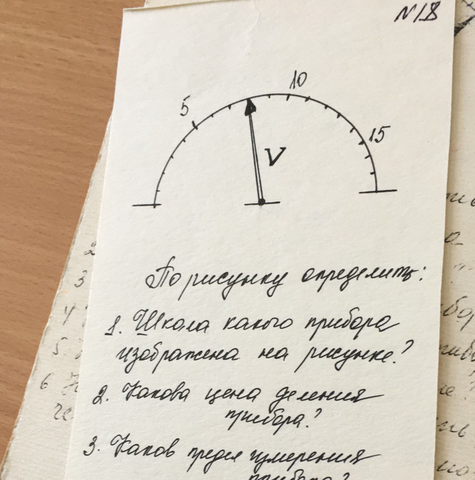 N18
5
10
15
V
По рисунку определить:
1. Шкала какого прибора
изображена на рисунке?
2. Какова цена деления
прибора?
3. Каков предел измерения
прибора?